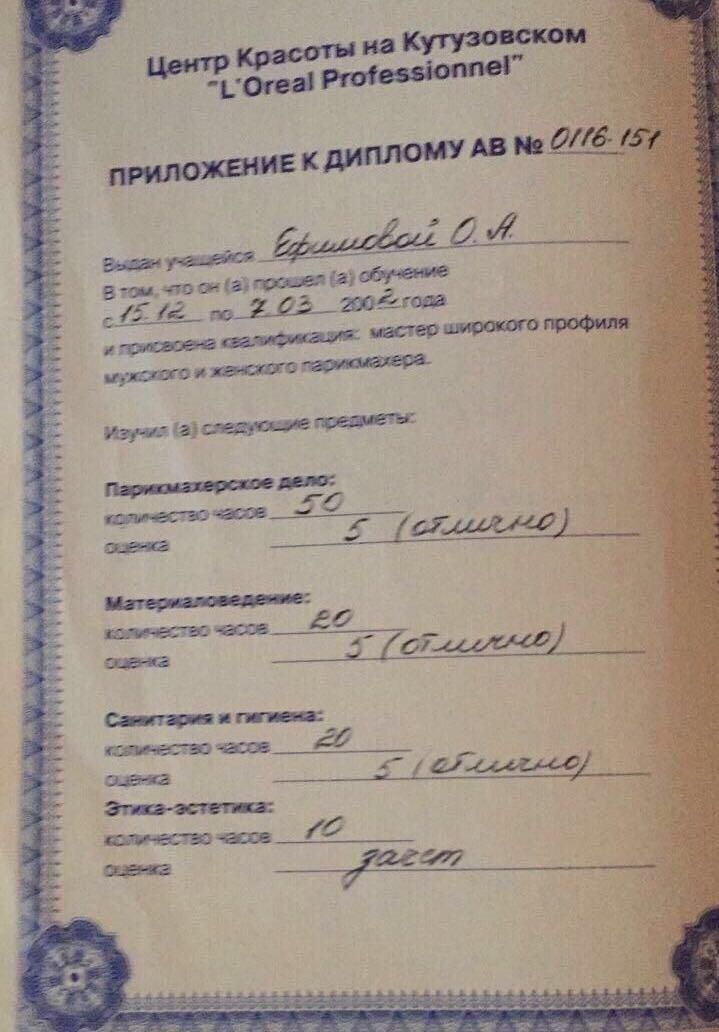 Центр Красоты на Кутузовском
"L'Oreal Professionnel"
ПРИЛОЖЕНИЕ К ДИПЛОМУ АВ № 0116-151
Выдан учащейся Ефимовой О.А.
В том, что он (а) прошел (а) обучение
с 15.12 по 7.03 2002 года
и присвоена квалификация: мастер широкого профиля
мужского и женского парикмахера.
Изучил (а) следующие предметы:
Парикмахерское дело:
количество часов 50
оценка 5 (отлично)
Материаловедение:
количество часов 20
оценка 5 (отлично)
Санитария и гигиена:
количество часов 20
оценка 5 (отлично)
Этика-эстетика:
количество часов 10
оценка зачет